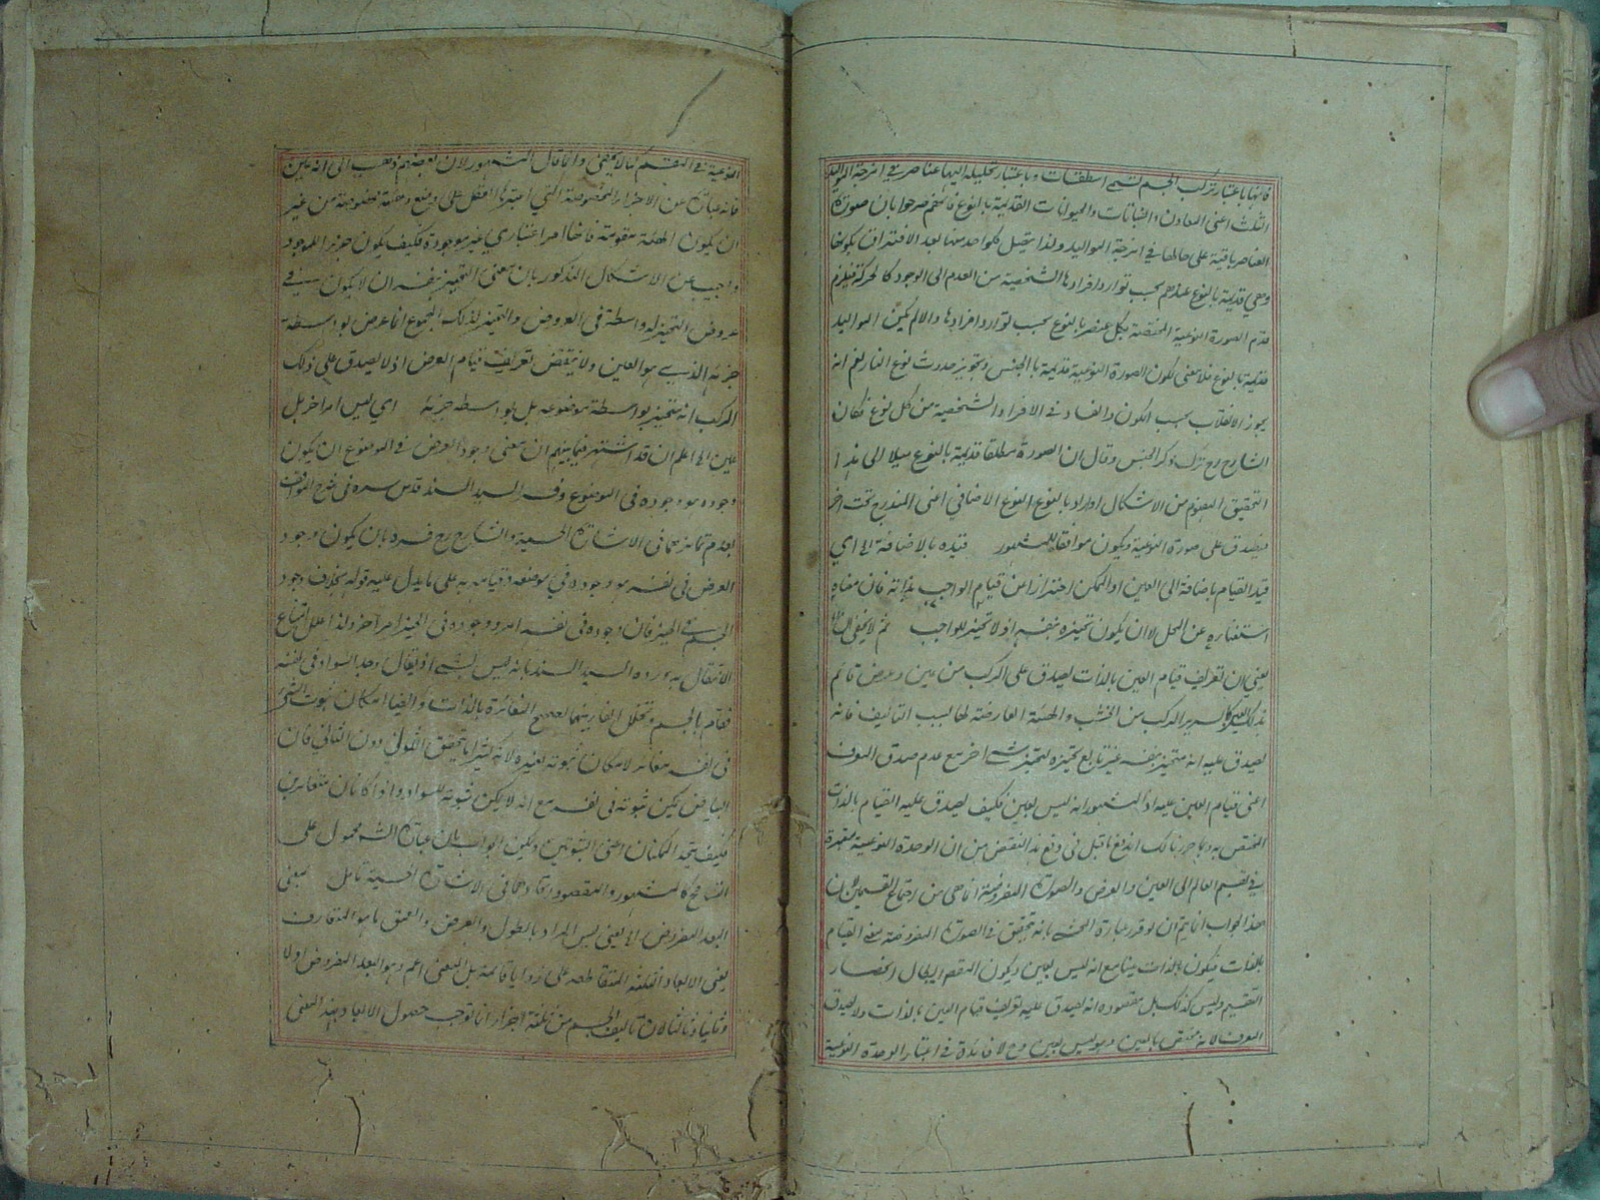 فانها باعتبار تركب الجسم تسمى اسطقسات وباعتبار تحليله اليها عناصر في امزجة المواليد
الثلث اعنى المعادن والنباتات والحيوانات القديمة بالنوع فانهم صرحوا بان صورة
العناصر باقية على حالها في امزجة المواليد ولذا يتحيل كلواحد منها بعد الافتراق بكونها
وهي قديمة بالنوع عندهم بحسب توارد افرادها الشخصية من العدم الى الوجود كالحركة فيلزم
قدم الصورة النوعية المختصة بكل عنصر بالنوع بحسب توارد افرادها والا لم يكن المواليد
قديمة بالنوع فلا معنى لكون الصورة النوعية قديمة بالجنس وتجويز حدوث نوع النار لغو انه
يجوز الانقلاب بحسب الكون والفساد في الافراد الشخصية من كل نوع فكان
الشارح رح ترك ذكر الجنس وقال ان الصورة مطلقا قديمة بالنوع ميلا الى هذا
التحقيق المفهوم من الاشكال او اراد بالنوع النوع الاضافي اعنى المندرج تحت اخر
فيصدق على صورة النوعية ويكون موافقا للمشهور قيده بالاضافة اه اي
قيد القيام باضافة الى العين او الممكن احترازا من قيام الواجب بذاته فان معناه
استغناءه عن المحل لا ان يكون تحيزه بنفسه اذ لا تحيز للواجب ثم لا يخفى اه
يعني ان تعريف قيام العين بالذات يصدق على المركب من عين وعرض قائم
بذلك العين كالسرير المركب من الخشب والهيئة العارضة لها بسبب التاليف فانه
يصدق عليه انه متحيز بنفسه غير تابع تحيزه لتحيز شئ اخر مع عدم صدق المعرف
اعنى قيام العين عليه اذ المشهور انه ليس بعين فكيف يصدق عليه القيام بالذات
المختص به وبما حررنا لك اندفع ما قيل في دفع هذا النقض من ان الوحدة النوعية معتبرة
في تقسيم العالم الى العين والعرض والصورة المفروضة انما هى من اجتماع القسمين لان
هذا الجواب انما يتم ان لو قرر عبارة المحشى بانه يتحقق في الصورة المفروضة معنى القيام
بالذات فيكون بالذات عينا مع انه ليس بعين ويكون المقصود ابطال انحصار
التقسيم وليس كذلك بل مقصوده انه يصدق عليه تعريف قيام العين بالذات ولا يصدق
المعرف لانه مختص بالعين وهو ليس بعين وح لا فائدة في اعتبار الوحدة النوعية
النوعية في المقسم كما لا يخفى وانما قال المشهور لان بعضهم ذهب الى انه عين
فانه عبارة عن الاجزاء المخصوصة التي اعتبرها العقل على وضع وهيئة مخصوصة من غير
ان يكون الهيئة مقومة فانها امر اعتباري غير موجودة فكيف يكون جزءا للموجود
واجيب عن الاشكال المذكور بان معنى التحيز بنفسه ان لا يكون شئ في
عروض التحيز له واسطة في العروض والتحيز لذلك المجموع انما عرض بواسطة
جزئه الذي هو العين ولا ينتقض تعريف قيام العرض اذ لا يصدق على ذلك
المركب انه متحيز بواسطة موضوعه بل بواسطة جزئه اي ليس امرا اخر بل
عين اه اعلم ان قد اشتهر فيما بينهم ان معنى وجود العرض في الموضوع ان يكون
وجوده هو وجوده في الموضوع وفسر السيد السند قدس سره في شرح المواقف
بعدم تمايزهما في الاشارة الحسية والشارح رح فسره بان يكون وجود
العرض في نفسه هو وجوده في موضعه وقيامه به على ما يدل عليه قوله بخلاف وجود
الجسم في الحيز فان وجوده في نفسه امر ووجوده في الحيز امر اخر ولذا علل امتناع
الانتقال به ورده السيد السند بانه ليس بشئ اذ يقال وجد السواد في نفسه
فقام بالجسم وتخلل الفاء بينهما يصحح المغائرة بالذات وايضا امكان ثبوت الشئ
في نفسه مغائر لامكان ثبوته لغيره لانه كثيرا ما يتحقق الاول دون الثاني فان
البياض يمكن ثبوته في نفسه مع انه لا يمكن ثبوته للسواد واذا كانا متغائرين
فكيف يتحد الممكنان اعنى الثبوتين ويمكن الجواب بان عبارة الشرح محمول على
التسامح كما هو المشهور والمقصود اتحادهما في الاشارة الحسية تامل بمعنى
البعد المفروض اه يعني ليس المراد بالطول والعرض والعمق ما هو المتعارف
يعني الابعاد الثلثة المتقاطعة على زوايا قائمة بل المعنى اعم وهو البعد المفروض اولا
وثانيا وثالثا لان تاليف الجسم من ثلثة اجزاء انما توجب حصول الابعاد بهذا المعنى